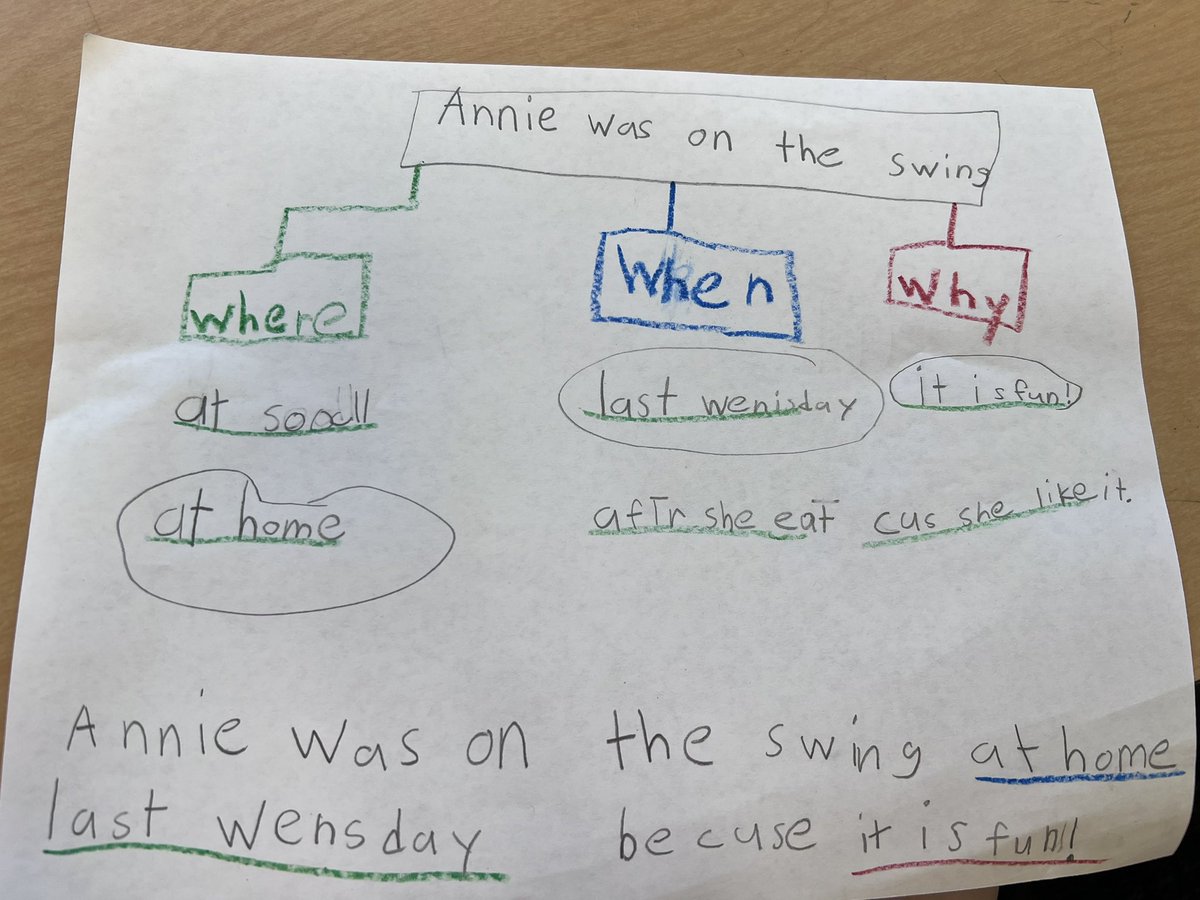 Annie was on the swing
where When Why
at soodll
last wenisday it is fun!
at home
aftr she eat cus she like it.
Annie was on the swing at home
last wensday becuse it is fun!!